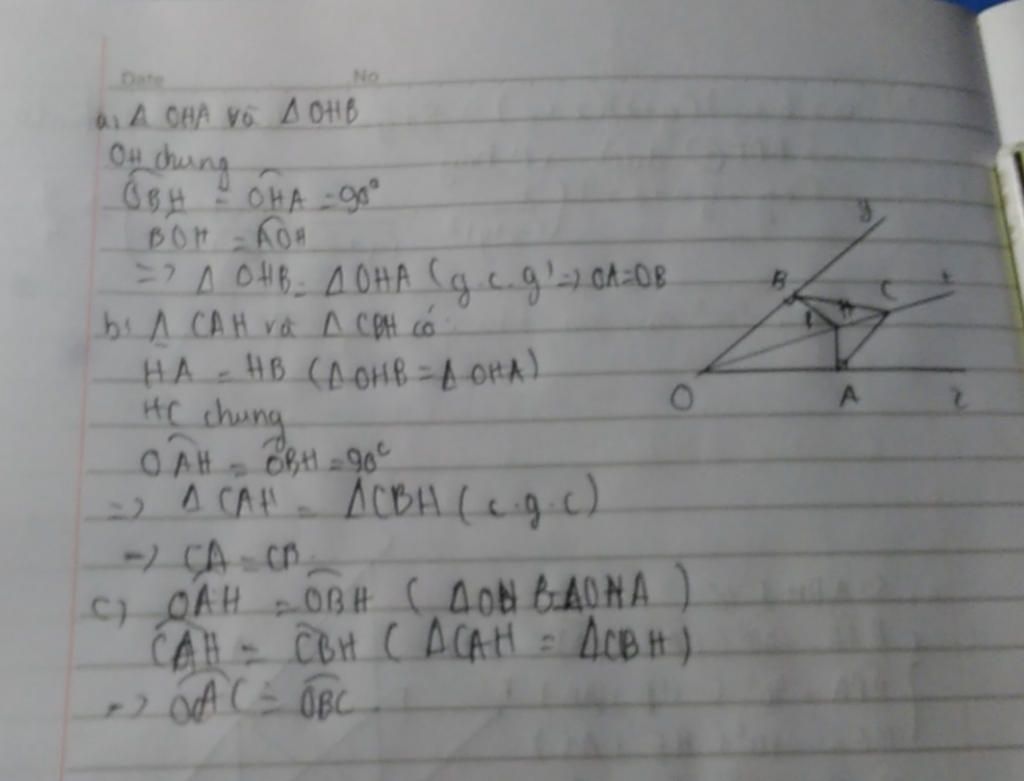 Date No
a, Δ OHA và Δ OHB
OH chung
OBH = OHA = 90°
BOH = AOH
=> Δ OHB = Δ OHA (g.c.g) => OA=OB
b, Δ CAH và Δ CBH có
HA = HB (Δ OHB = Δ OHA)
HC chung
OAH = OBH = 90°
=> Δ CAH = Δ CBH (c.g.c)
=> CA = CB
c) OAH = OBH (Δ OHB = Δ OHA)
CAH = CBH (Δ CAH = Δ CBH)
=> OAC = OBC
y
B C t
H
O A